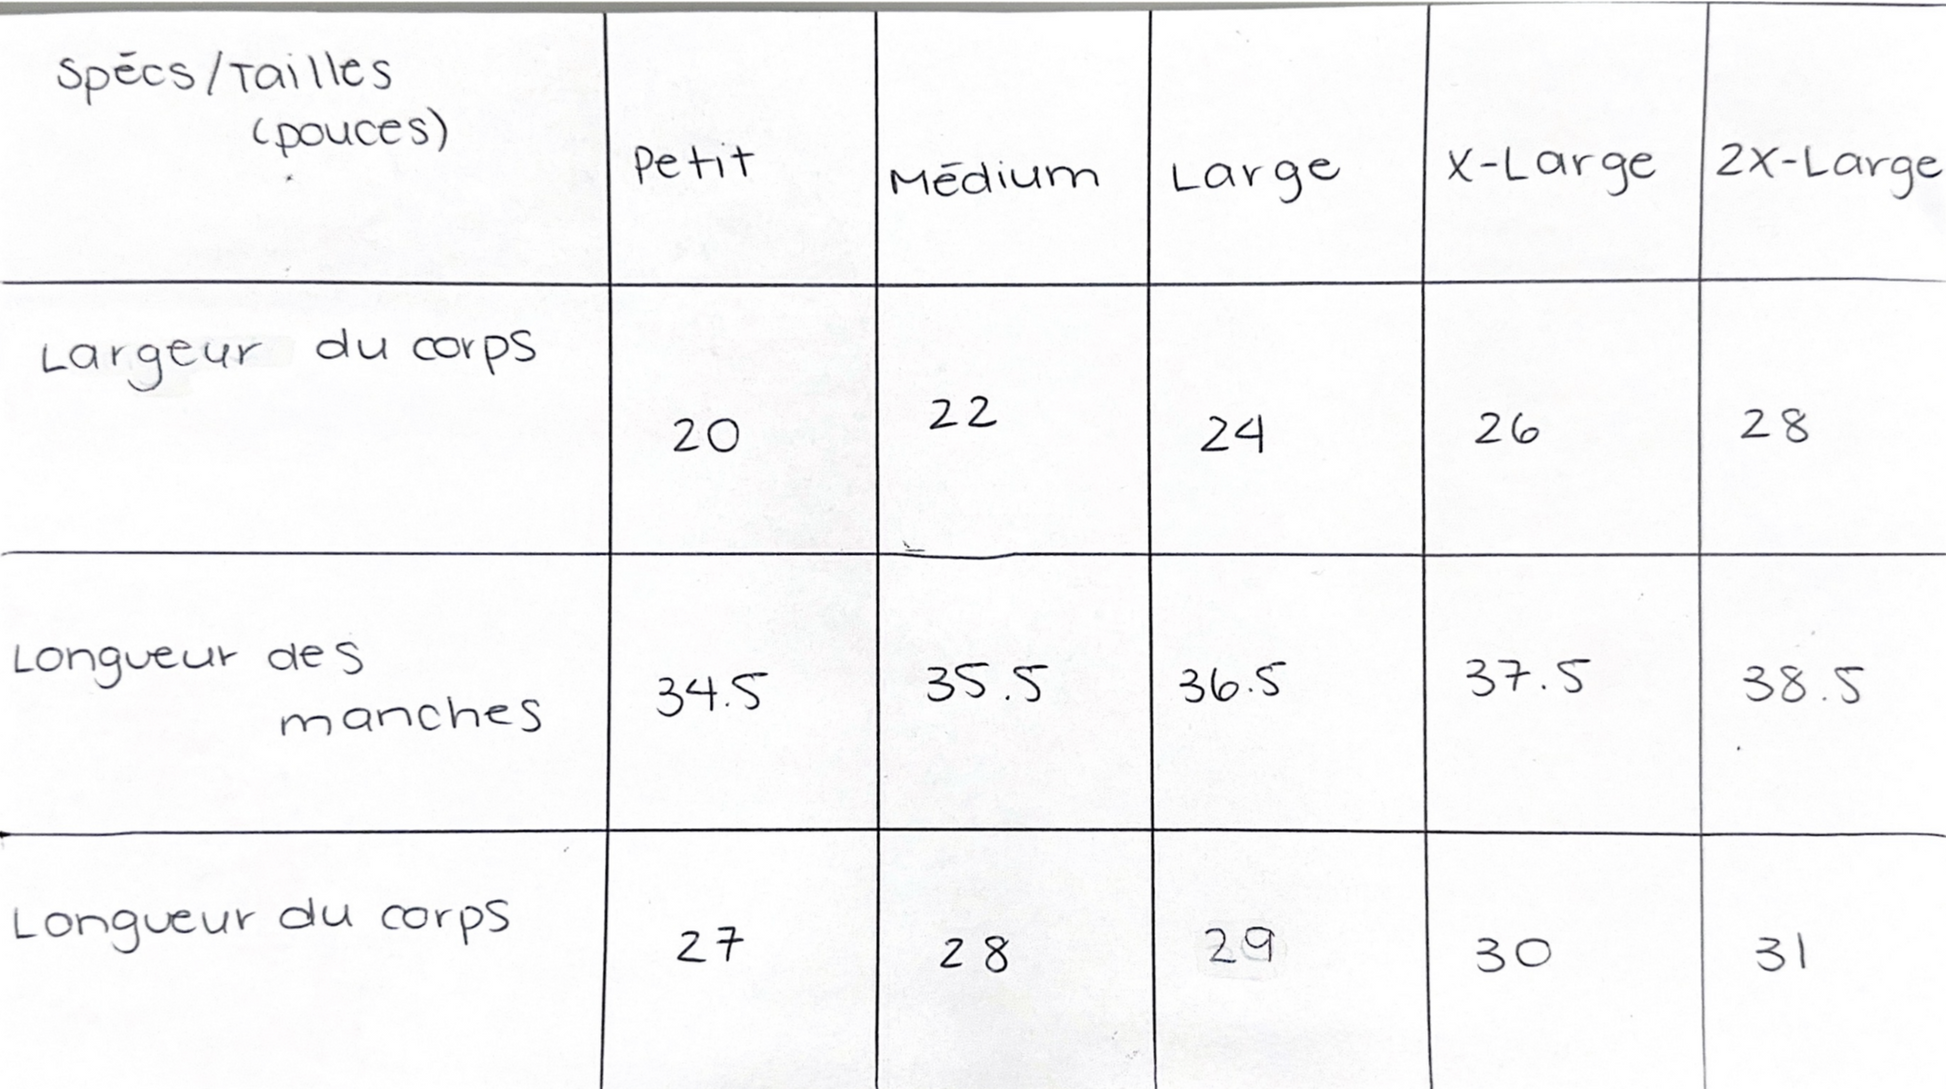 Spécs/Tailles
(pouces)
Petit
Médium
Large
X-Large
2X-Large
Largeur du corps
20
22
24
26
28
Longueur des
manches
34.5
35.5
36.5
37.5
38.5
Longueur du corps
27
28
29
30
31